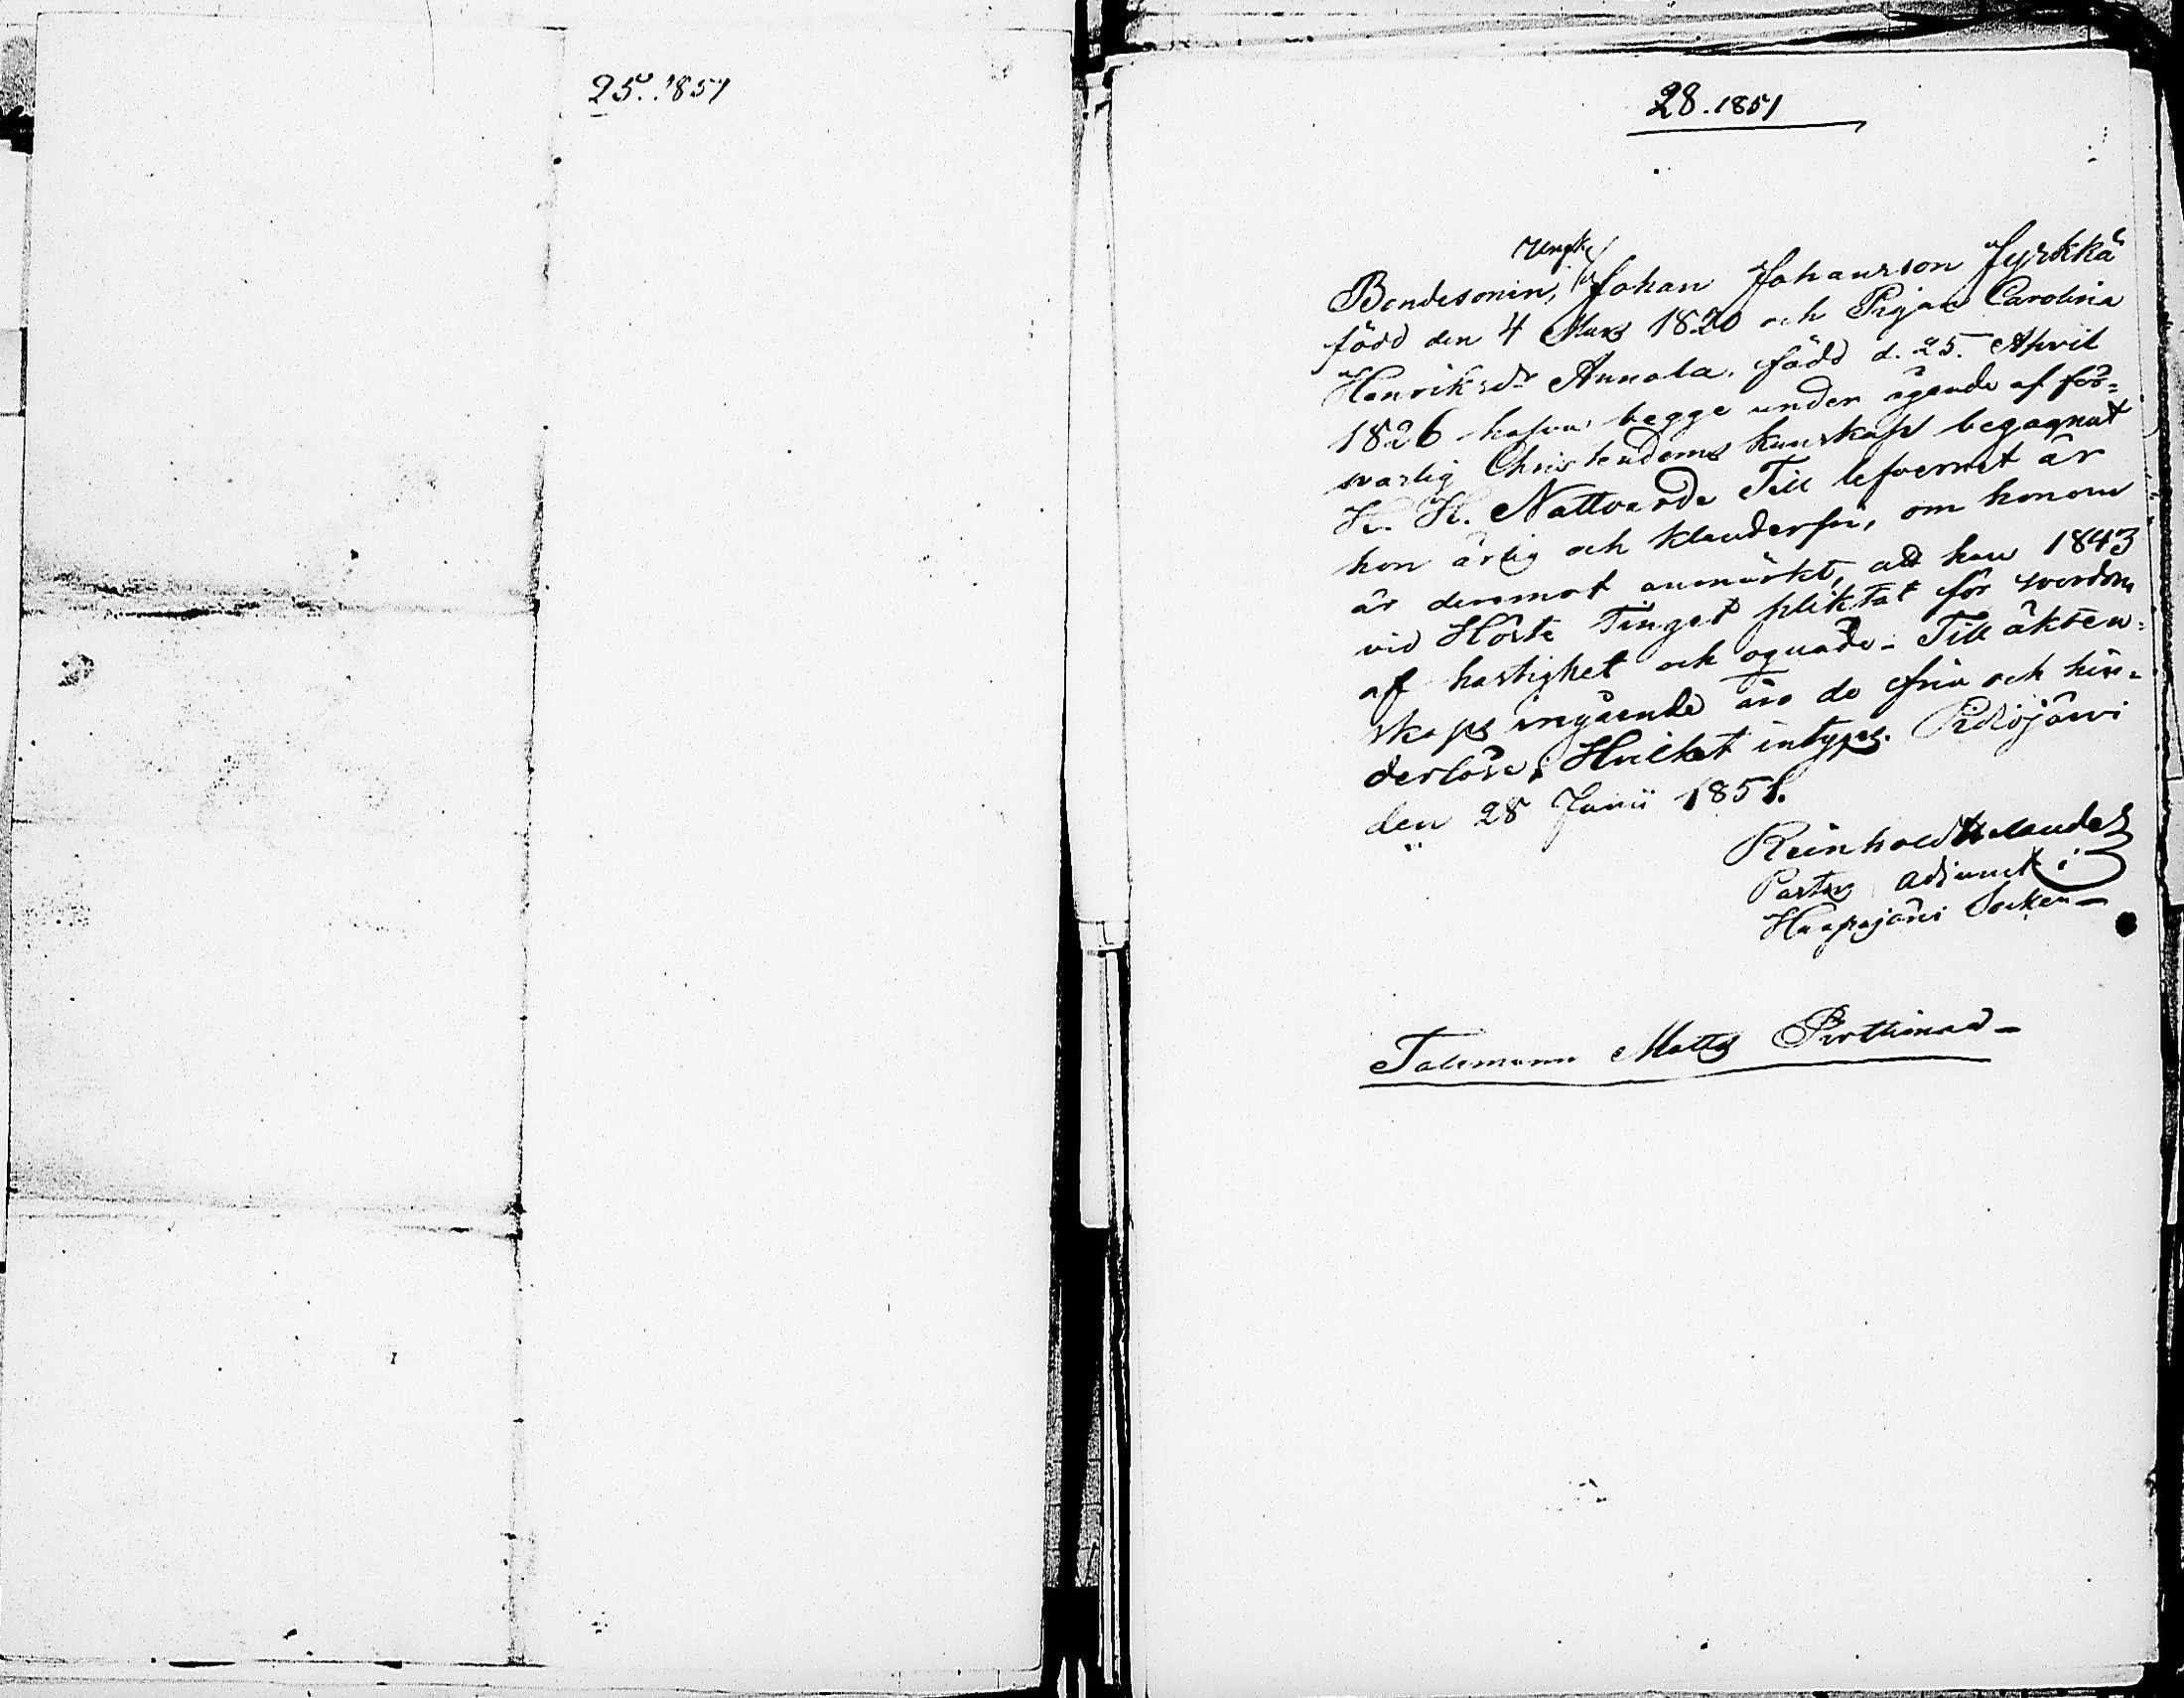 25. 1851
28. 1851
Ungk.
Bondesonen, Johan Johansson Jyrkkä
född den 4 Mars 1820 och Pigan Carolina
Henriksdr Annala, född d. 25. April
1826 hafva begge under ägande af för=
svarlig Christendoms kunskap begagnat
H. H. Nattvarde Till lefvernet är
hon ärlig och klanderfri, om honom
är deremot anmärkt, att han 1843
vid Höste Tinget pliktat för svordom
af hastighet och oqvade. Till äkten=
skaps ingående äro de fria och hin=
derlösa, Hvilket intygas. Pidisjärvi
den 28 Junii 1851.
Reinhold
Pastors Adjunct i
Haapajärvi Socken
Talemann Matts